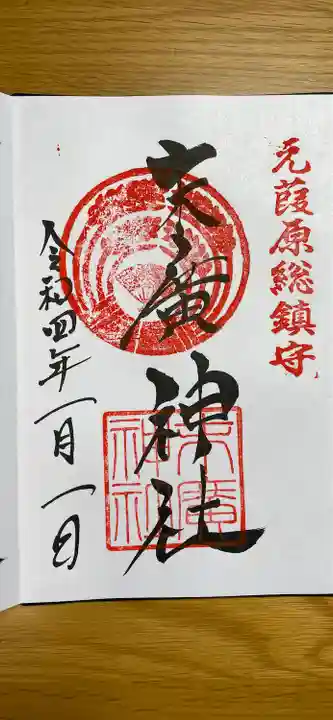 元葭原総鎮守
末廣神社
末廣神社
令和四年一月一日